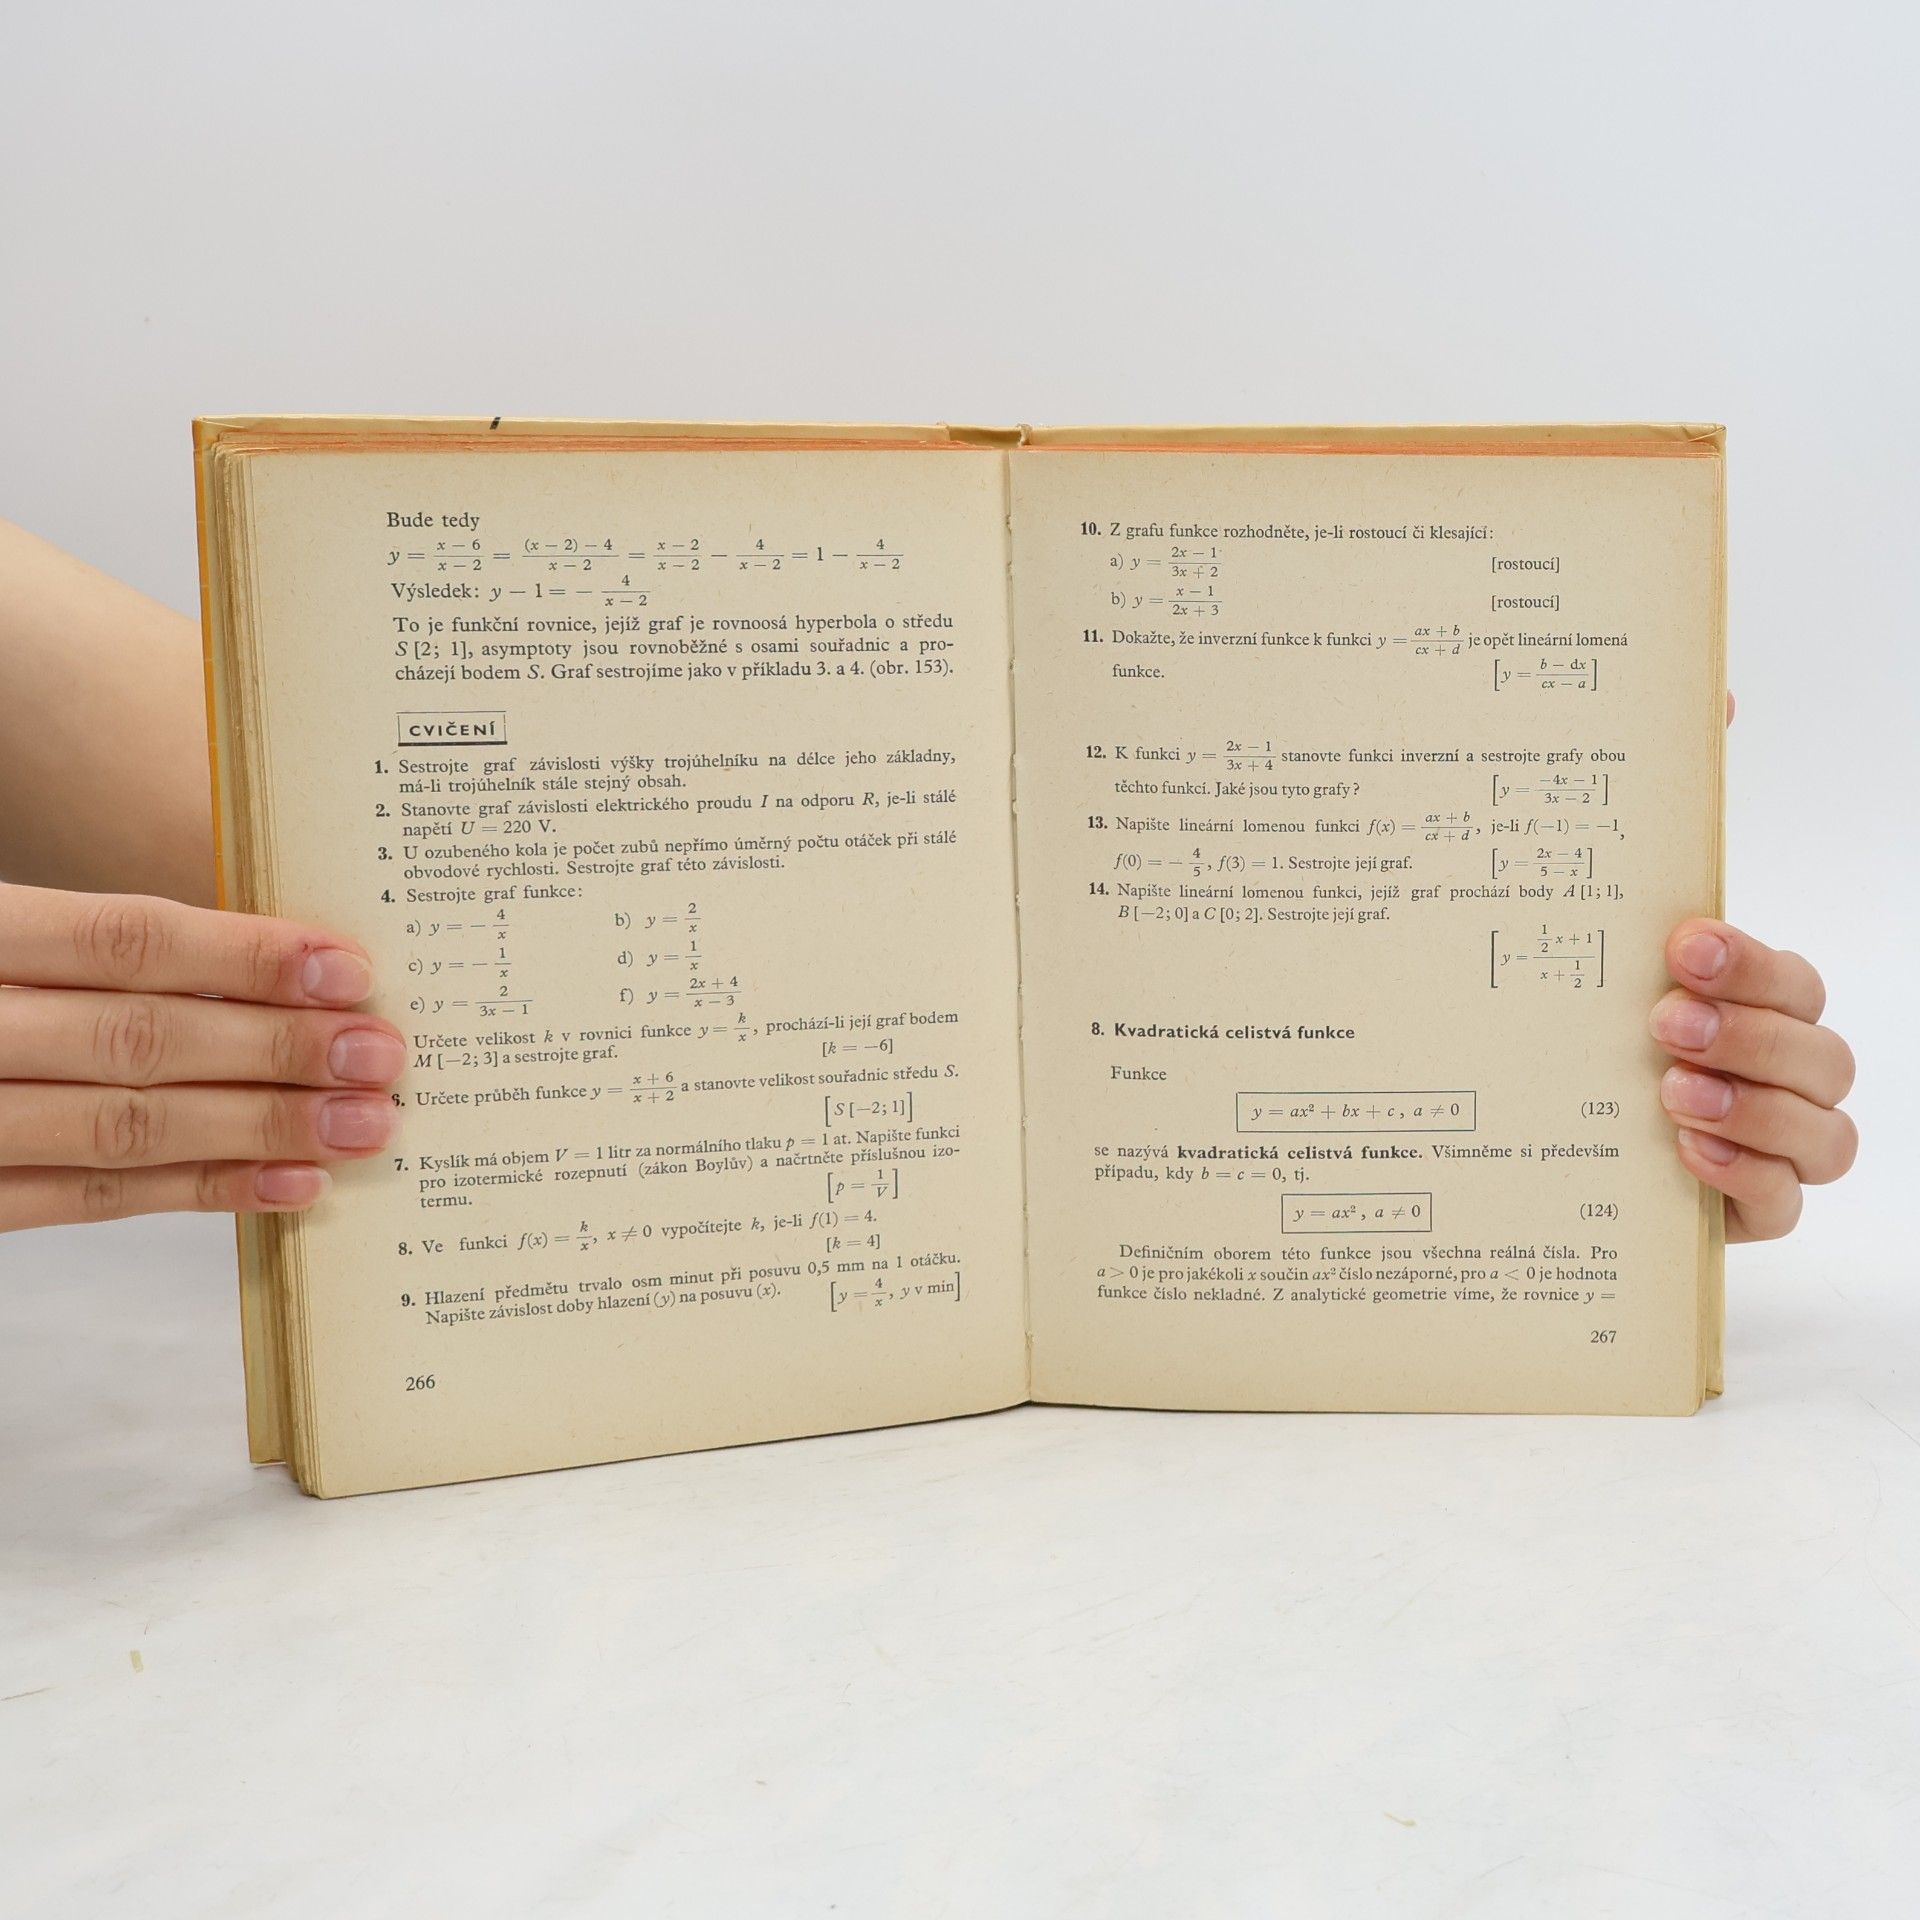 Bude tedy
y = \frac{x − 6}{x − 2} = \frac{(x − 2) − 4}{x − 2} = \frac{x − 2}{x − 2} − \frac{4}{x − 2} = 1 − \frac{4}{x − 2}
Výsledek: y − 1 = − \frac{4}{x − 2}
To je funkční rovnice, jejíž graf je rovnoosá hyperbola o středu
S [2; 1], asymptoty jsou rovnoběžné s osami souřadnic a pro-
cházejí bodem S. Graf sestrojíme jako v příkladu 3. a 4. (obr. 153).
CVIČENÍ
1. Sestrojte graf závislosti výšky trojúhelníku na délce jeho základny,
má-li trojúhelník stále stejný obsah.
2. Stanovte graf závislosti elektrického proudu I na odporu R, je-li stálé
napětí U = 220 V.
3. U ozubeného kola je počet zubů nepřímo úměrný počtu otáček při stálé
obvodové rychlosti. Sestrojte graf této závislosti.
4. Sestrojte graf funkce:
a) y = − \frac{4}{x} b) y = \frac{2}{x}
c) y = − \frac{1}{x} d) y = \frac{1}{x}
e) y = \frac{2}{3x − 1} f) y = \frac{2x + 4}{x − 3}
Určete velikost k v rovnici funkce y = \frac{k}{x}, prochází-li její graf bodem
M [−2; 3] a sestrojte graf. [k = −6]
6. Určete průběh funkce y = \frac{x + 6}{x + 2} a stanovte velikost souřadnic středu S.
[S [−2; 1]]
7. Kyslík má objem V = 1 litr za normálního tlaku p = 1 at. Napište funkci
pro izotermické rozepnutí (zákon Boylův) a načrtněte příslušnou izo-
termu. [p = \frac{1}{V}]
8. Ve funkci f(x) = \frac{k}{x}, x ≠ 0 vypočítejte k, je-li f(1) = 4.
[k = 4]
9. Hlazení předmětu trvalo osm minut při posuvu 0,5 mm na 1 otáčku.
Napište závislost doby hlazení (y) na posuvu (x). [y = \frac{4}{x}, y v min]
266
10. Z grafu funkce rozhodněte, je-li rostoucí či klesající:
a) y = \frac{2x − 1}{3x + 2} [rostoucí]
b) y = \frac{x − 1}{2x + 3} [rostoucí]
11. Dokažte, že inverzní funkce k funkci y = \frac{ax + b}{cx + d} je opět lineární lomená
funkce. [y = \frac{b − dx}{cx − a}]
12. K funkci y = \frac{2x − 1}{3x + 4} stanovte funkci inverzní a sestrojte grafy obou
těchto funkcí. Jaké jsou tyto grafy? [y = \frac{−4x − 1}{3x − 2}]
13. Napište lineární lomenou funkci f(x) = \frac{ax + b}{cx + d}, je-li f(−1) = −1,
f(0) = − \frac{4}{5}, f(3) = 1. Sestrojte její graf. [y = \frac{2x − 4}{5 − x}]
14. Napište lineární lomenou funkci, jejíž graf prochází body A [1; 1],
B [−2; 0] a C [0; 2]. Sestrojte její graf.
[y = \frac{\frac{1}{2} x + 1}{x + \frac{1}{2}}]
8. Kvadratická celistvá funkce
Funkce
y = ax² + bx + c , a ≠ 0 (123)
se nazývá kvadratická celistvá funkce. Všimněme si především
případu, kdy b = c = 0, tj.
y = ax² , a ≠ 0 (124)
Definičním oborem této funkce jsou všechna reálná čísla. Pro
a > 0 je pro jakékoli x součin ax² číslo nezáporné, pro a < 0 je hodnota
funkce číslo nekladné. Z analytické geometrie víme, že rovnice y =
267